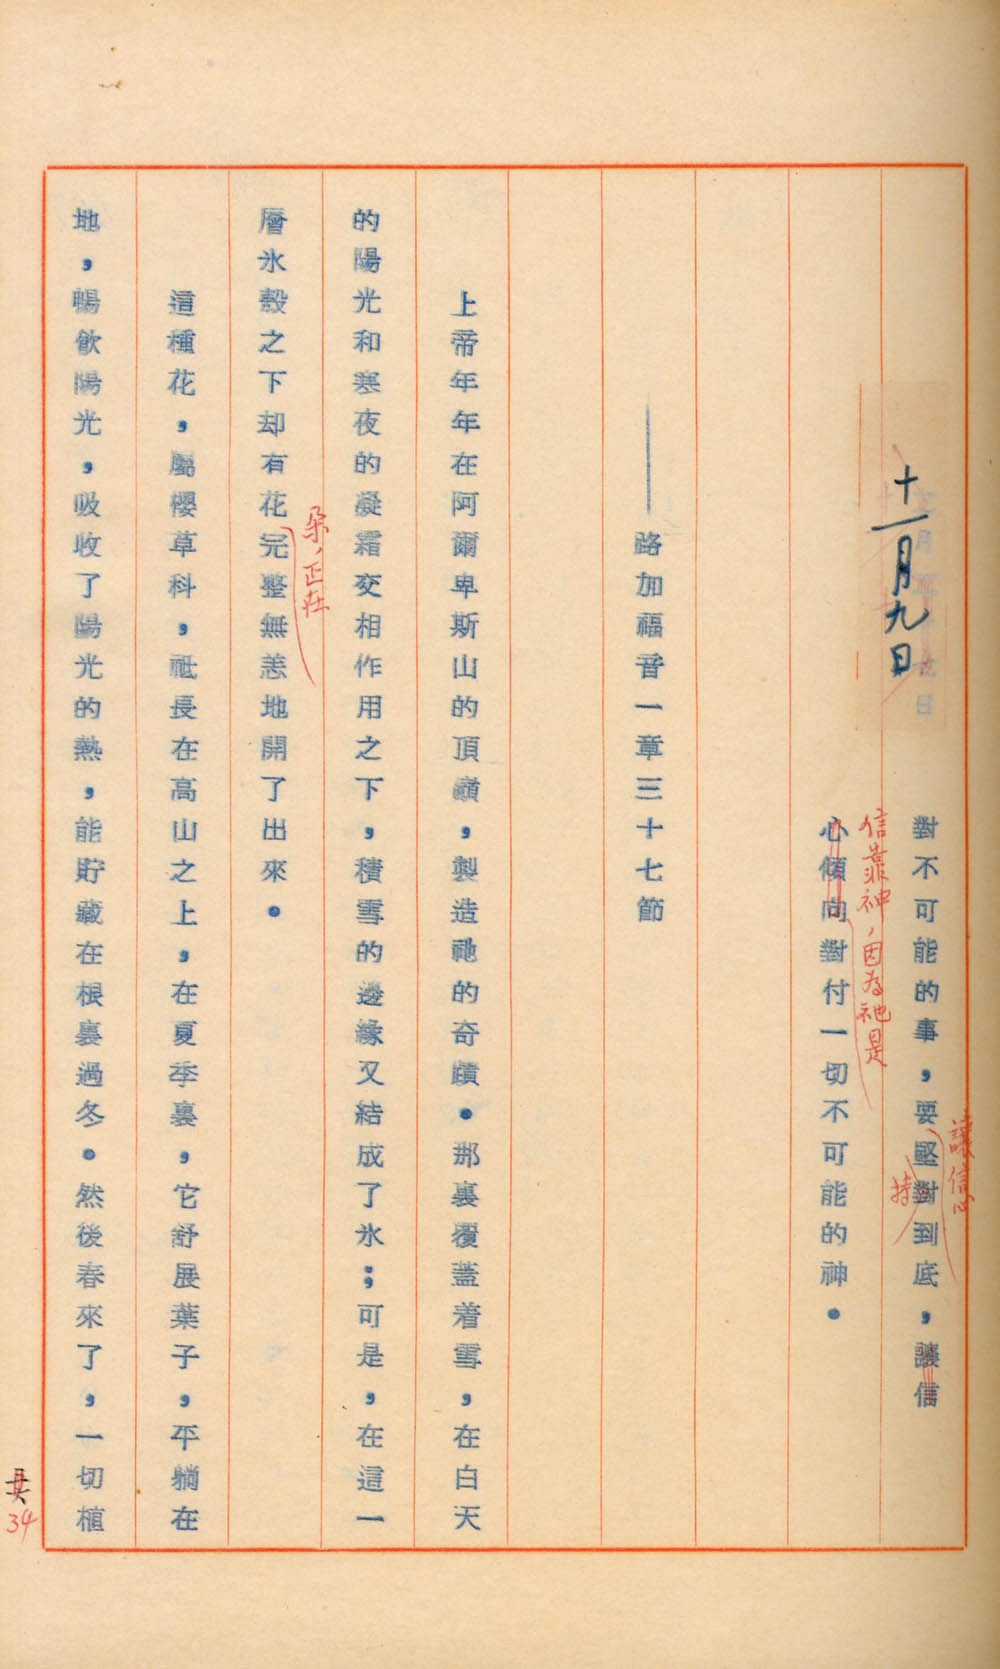 十一月九日
對不可能的事，要堅對到底，讓信
讓信心
持
心傾向對付一切不可能的神。
信靠神，因為祂是
——路加福音一章三十七節
上帝年年在阿爾卑斯山的頂巔，製造祂的奇蹟。那裏覆蓋着雪，在白天
的陽光和寒夜的凝霜交相作用之下，積雪的邊緣又結成了氷；可是，在這一
層氷殼之下却有花完整無恙地開了出來。
朵，正在
這種花，屬櫻草科，祗長在高山之上，在夏季裏，它舒展葉子，平躺在
地，暢飲陽光，吸收了陽光的熱，能貯藏在根裏過冬。然後春來了，一切植
34